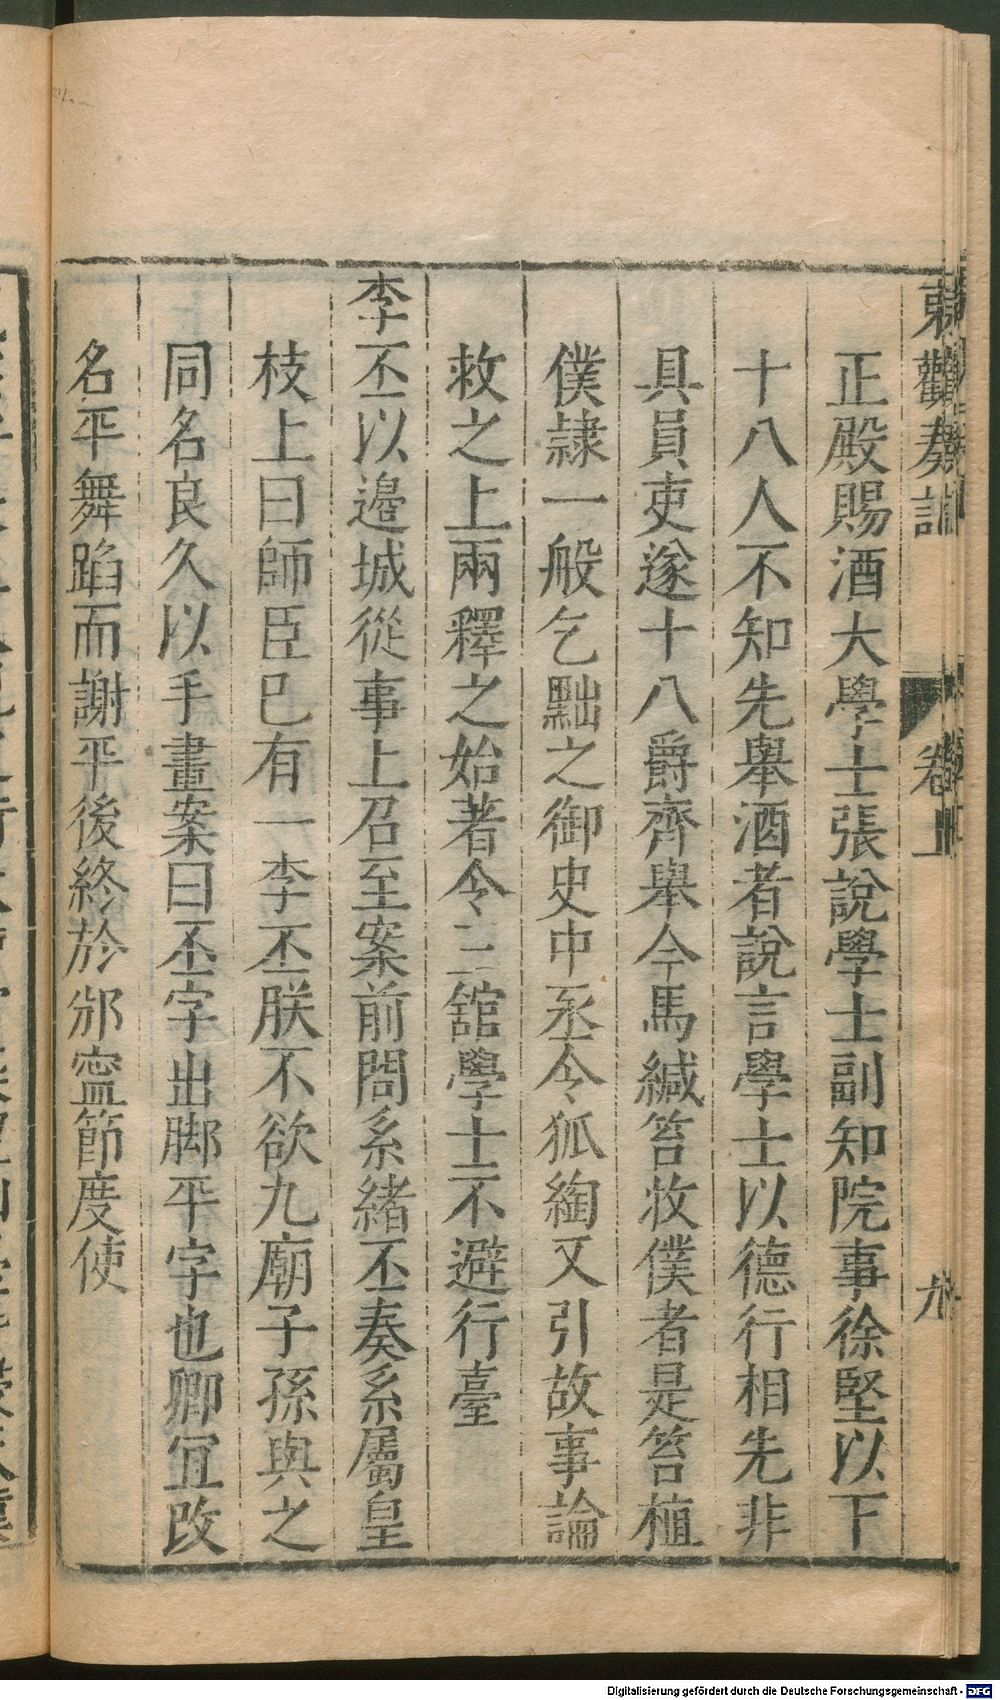 東觀奏記 卷上 九
正殿賜酒大學士張說學士副知院事徐堅以下
十八人不知先舉酒者說言學士以德行相先非
具員吏遂十八爵齊舉今馬緘笞牧僕者是笞植
僕隷一般乞黜之御史中丞令狐綯又引故事論
救之上兩釋之始著令三舘學士不避行臺
李丕以邊城從事上召至案前問系緒丕奏系屬皇
枝上曰師臣已有一李丕朕不欲九廟子孫與之
同名良久以手畫案曰丕字出脚平字也卿冝改
名平舞蹈而謝平後終於邠寧節度使
Digitalisierung gefördert durch die Deutsche Forschungsgemeinschaft - DFG